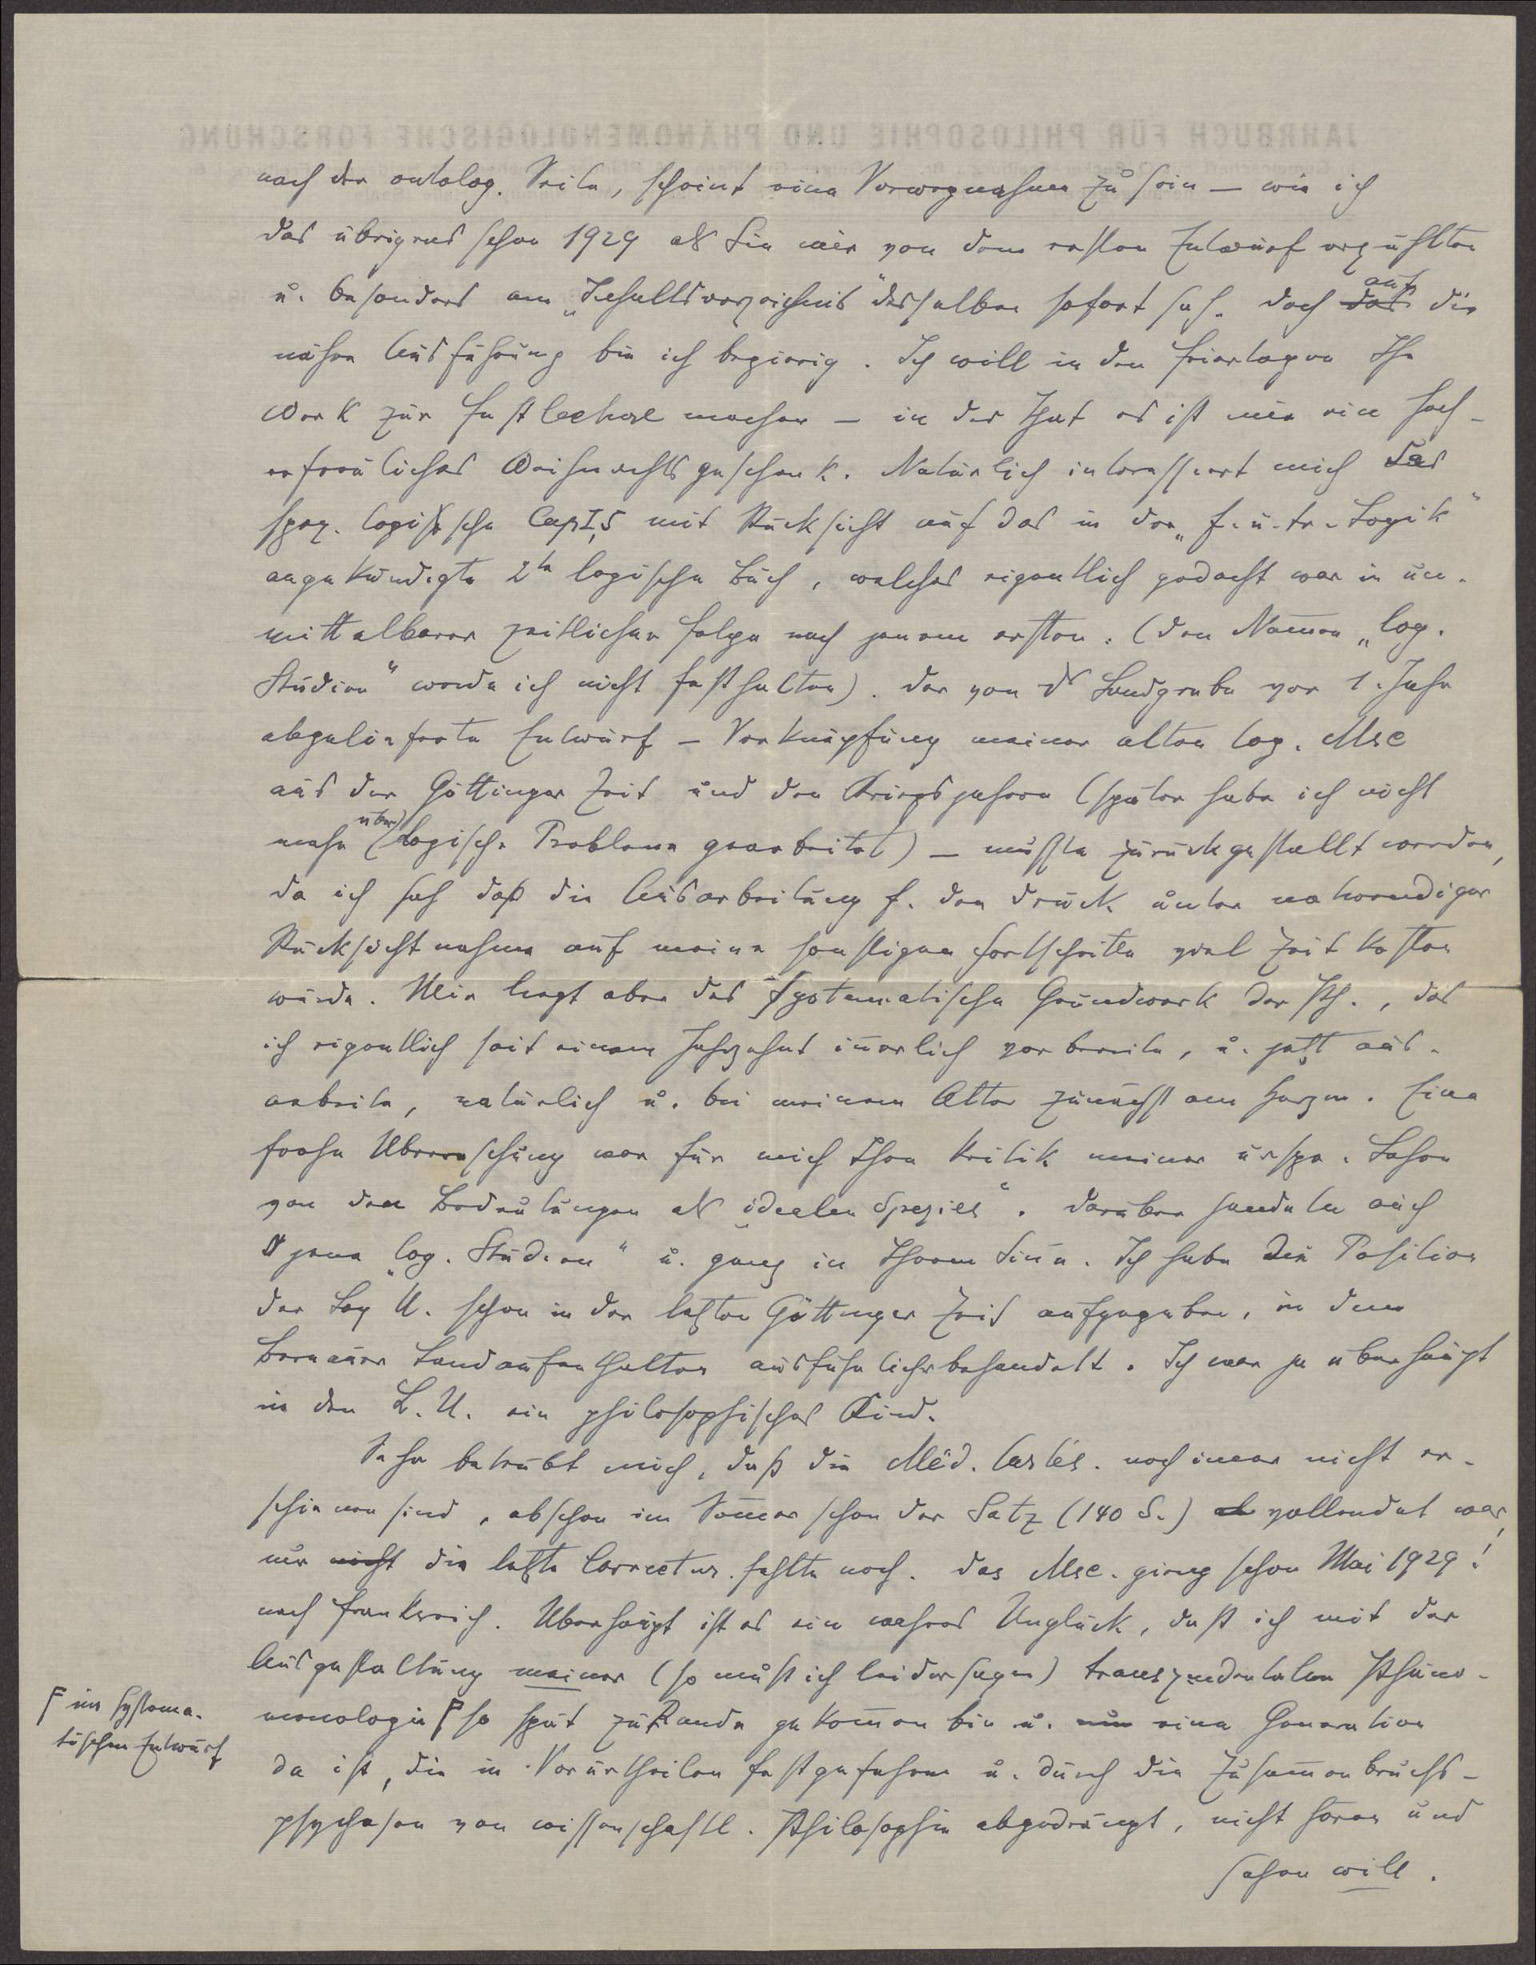 nach der ontolog. Seite, scheint eine Vorwegnahme zu sein – wie ich
das übrigens schon 1929 als Sie mir von dem ersten Entwurf erzählten
u. besonders am „Inhaltsverzeichnis" desselben sofort sah. Doch das auf die
nähere Ausführung bin ich begierig. Ich will in den Feiertagen Ihr
Werk zur Festlecture machen – in der That es ist mir ein hoch-
erfreuliches Weihnachtsgeschenk. Natürlich interessiert mich das
spez. logische Cap I, 5 mit Rücksicht auf das in der „f. u. tr. Logik"
angekündigte 2te logische Buch, welches eigentlich gedacht war in un-
mittelbarer zeitlicher Folge nach jenem ersten. (Den Namen „log.
Studien" werde ich nicht festhalten). Der von Dr Landgrebe vor 1 Jahr
abgelieferte Entwurf – Verknüpfung meiner alten log. Msc
aus der Göttinger Zeit und den Kriegsjahren (später habe ich nicht
mehr über logische Probleme gearbeitet) – mußte zurückgestellt werden,
da ich sah daß die Ausarbeitung f. den Druck unter notwendiger
Rücksichtnahme auf meine sonstigen Fortschritte viel Zeit kosten
würde. Mir liegt aber das systematische Grundwerk der Ph., das
ich eigentlich seit einem Jahrzehnt innerlich vorbereite, u. jetzt aus-
arbeite, natürlich u. bei meinem Alter zunächst am Herzen. Eine
frohe Überraschung war für mich Ihre Kritik meiner urspr. Lehre
von den Bedeutungen als „idealen Spezies". Darüber handeln auch
jene „log. Studien" u. ganz in Ihrem Sinn. Ich habe die Position
der Log U. schon in der letzten Göttinger Zeit aufgegeben, in dem
Bernauer Landaufenthalten ausführlich behandelt. Ich war ja überhaupt
in den L.U. ein philosophisches Kind.
Sehr betrübt mich, daß die Méd. Cartés. noch immer nicht er-
schienen sind, obschon im Sommer schon der Satz (140 S.) vollendet war,
nur nicht die letzte Correctur fehlte noch. Das Msc. ging schon Mai 1929!
nach Frankreich. Überhaupt ist es ein wahres Unglück, daß ich mit der
Ausgestaltung meiner (so muß ich leider sagen) transzendentalen Phäno-
menologie so spät zu Rande gekommen bin u. nun eine Generation
im systema-
tischen Entwurf
da ist, die in Vorurtheilen festgefahren u. durch die Zusammenbruchs-
psychosen von wissenschaftl. Philosophie abgedrängt, nicht hören und
sehen will.